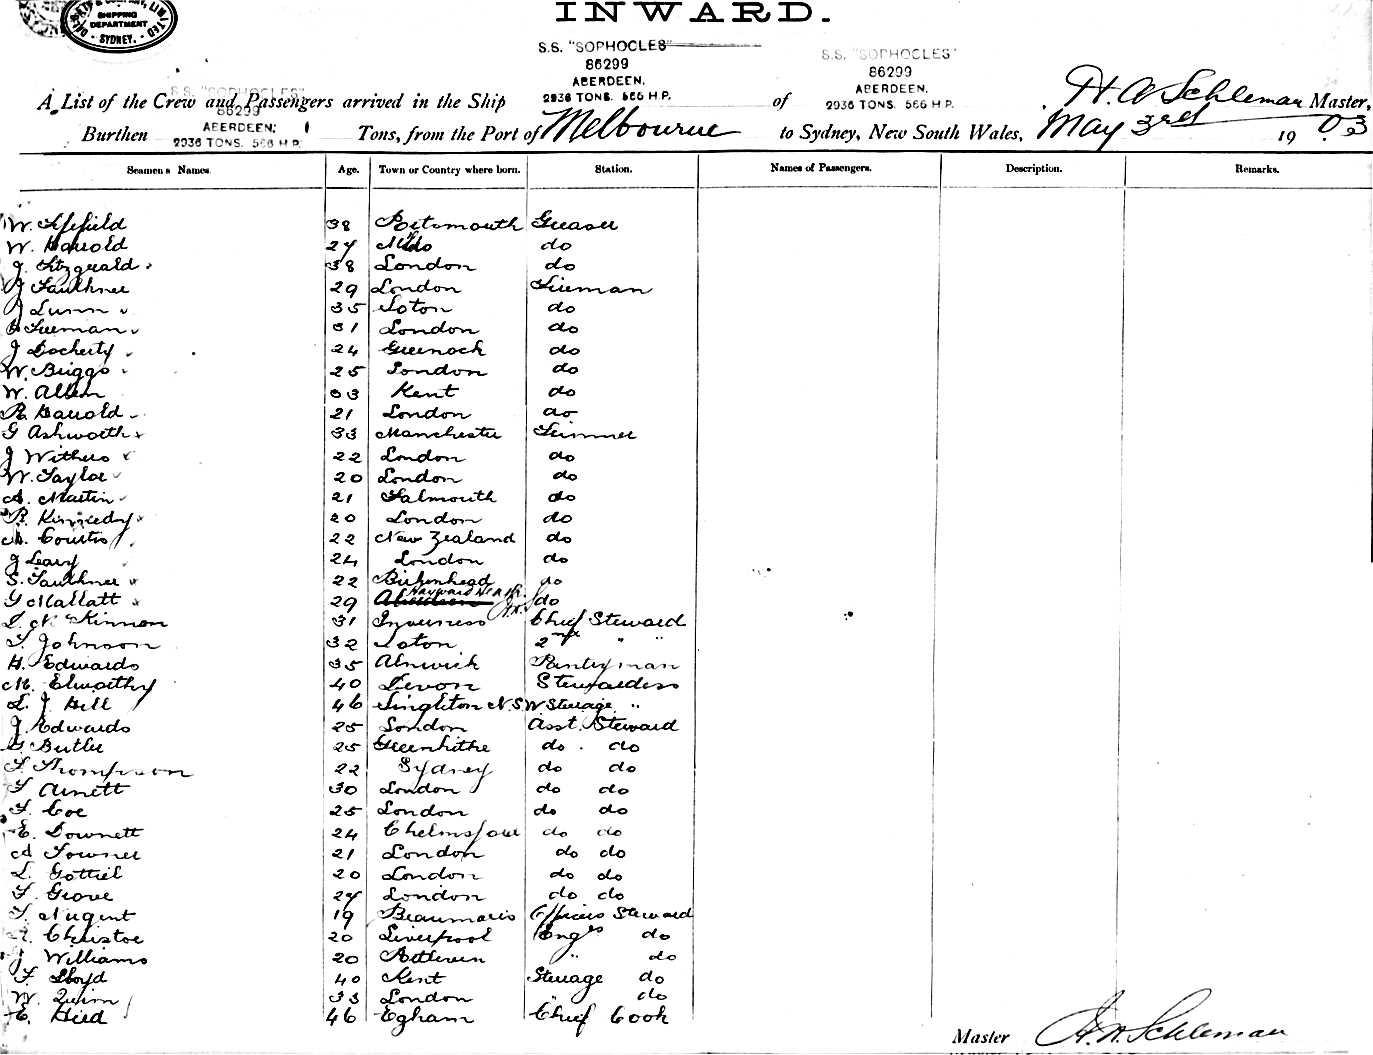 & COMPANY, LIMITED
SHIPPING
DEPARTMENT
SYDNEY.
INWARD.
S.S. "SOPHOCLES"
86299
ABERDEEN.
2936 TONS. 566 H.P.
S.S. "SOPHOCLES"
86299
ABERDEEN.
2936 TONS. 566 H.P.
S.S. "SOPHOCLES"
86299
ABERDEEN.
2936 TONS. 566 H.P.
A List of the Crew and Passengers arrived in the Ship of Master,
Burthen Tons, from the Port of Melbourne to Sydney, New South Wales, May 3rd 1903
Seamen's Names. Age. Town or Country where born. Station. Names of Passengers. Description. Remarks.
W. 38 Portsmouth Greaser
W. Harrold 27 do do
J. Fitzgerald 38 London do
J Faulkner 29 London Fireman
J Lunn 35 Soton do
Freeman 31 London do
J Docherty 24 Greenock do
W. Briggs 25 London do
W. Allen 33 Kent do
R. Harrold 21 London do
G Ashworth 33 Manchester Trimmer
J Withers 22 London do
W. Taylor 20 London do
A. Martin 21 Falmouth do
R. Kennedy 20 London do
Courtis 22 New Zealand do
J Leary 24 London do
S. Faulkner 22 Birkenhead do
G Mallatt 29 Aberdeen do
McKinnon 31 Inverness Chief Steward
T. Johnson 32 Soton 2nd " "
H. Edwards 35 Alnwick Pantryman
M. Elworthy 40 Devon Stewardess
L. J. Hill 46 Singleton N.S.W Steerage "
J. Edwards 25 London Asst. Steward
G. Butler 25 Greenhithe do do
F. Thompson 22 Sydney do do
F Arnett 30 London do do
F. Coe 25 London do do
E. Downett 24 do do
A Towner 21 London do do
L. Gottriel 20 London do do
F. Grove 27 London do do
T. Nugent 19 Beaumaris Officers Steward
Christoe 20 Liverpool Engrs do
J Williams 20 " do
F. Lloyd 40 Kent Steerage do
W. Quinn 33 London " do
E. Hird 46 Egham Chief Cook
Master